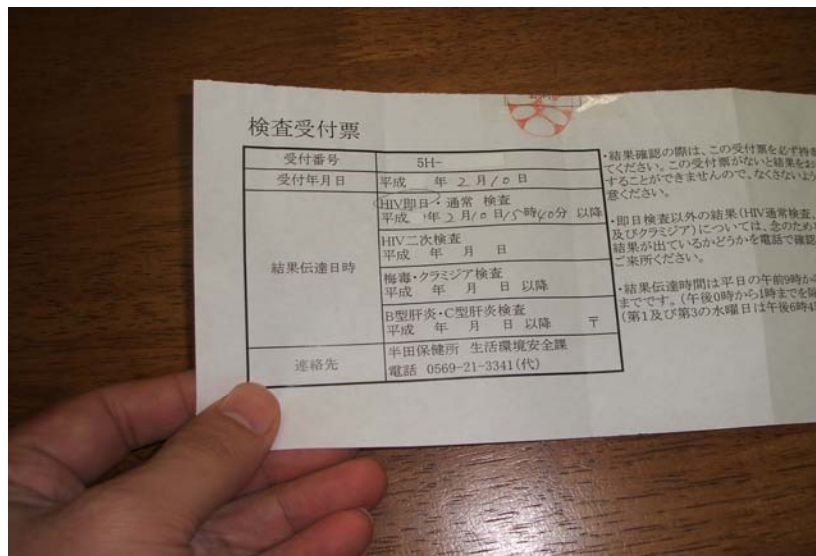 検査受付票
受付番号 5H-
受付年月日 平成 年 2月10日
結果伝達日時
HIV即日・通常 検査
平成 年2月10日15時40分 以降
HIV二次検査
平成 年 月 日
梅毒・クラミジア検査
平成 年 月 日 以降
B型肝炎・C型肝炎検査
平成 年 月 日 以降 〒
連絡先
半田保健所 生活環境安全課
電話 0569-21-3341(代)
・結果確認の際は、この受付票を必ず持
てください。この受付票がないと結果をお
することができませんので、なくさないよう
意ください。
・即日検査以外の結果(HIV通常検査、
及びクラミジア)については、念のため
結果が出ているかどうかを電話で確認
ご来所ください。
・結果伝達時間は平日の午前9時か
までです。(午後0時から1時までを除
(第1及び第3の水曜日は午後6時4